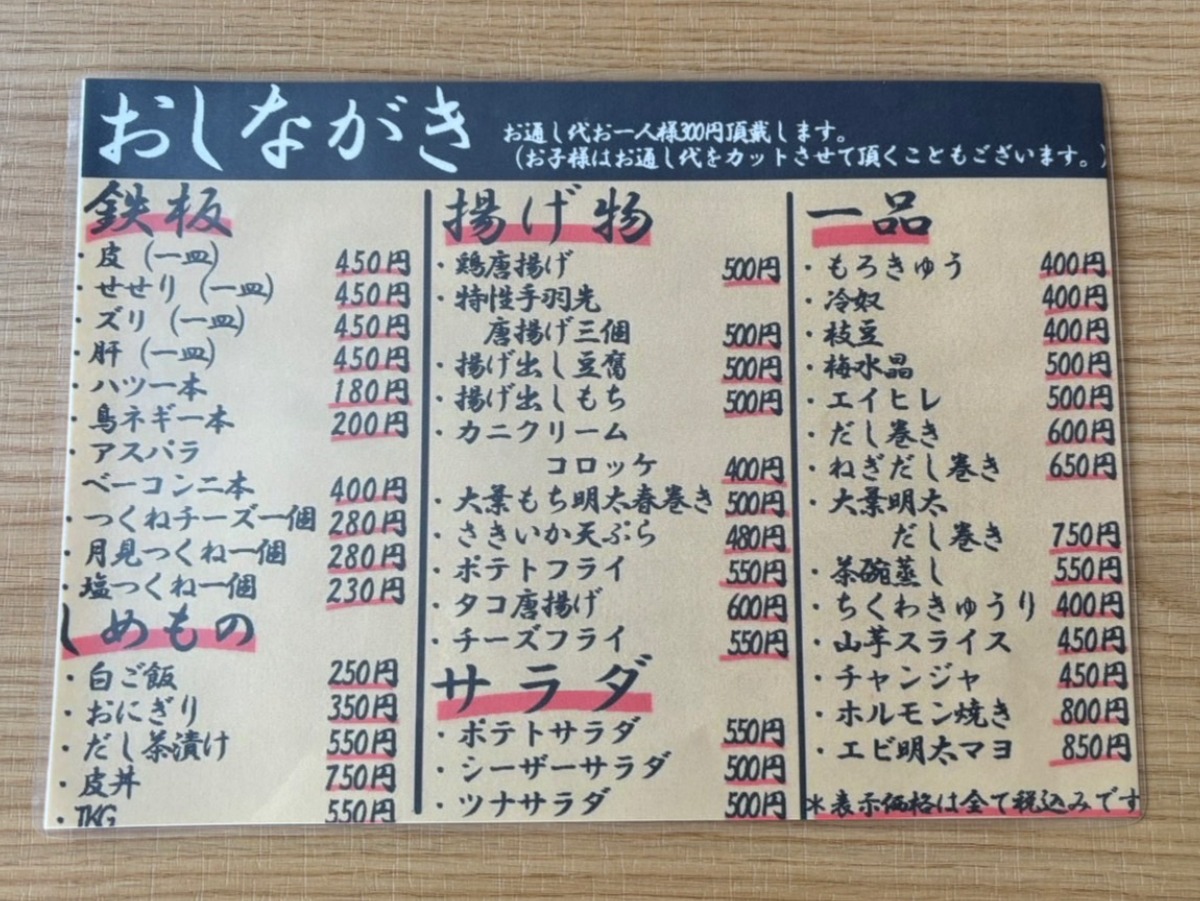 おしながき
お通し代お一人様300円頂戴します。
（お子様はお通し代をカットさせて頂くこともございます。）
鉄板
・皮（一皿） 450円
・せせり（一皿） 450円
・ズリ（一皿） 450円
・肝（一皿） 450円
・ハツ一本 180円
・鳥ネギ一本 200円
・アスパラ
ベーコン二本 400円
・つくねチーズ一個 280円
・月見つくね一個 280円
・塩つくね一個 230円
しめもの
・白ご飯 250円
・おにぎり 350円
・だし茶漬け 550円
・皮丼 750円
・TKG 550円
揚げ物
・鶏唐揚げ 500円
・特性手羽先
唐揚げ三個 500円
・揚げ出し豆腐 500円
・揚げ出しもち 500円
・カニクリーム
コロッケ 400円
・大葉もち明太春巻き 500円
・さきいか天ぷら 480円
・ポテトフライ 550円
・タコ唐揚げ 600円
・チーズフライ 550円
サラダ
・ポテトサラダ 550円
・シーザーサラダ 500円
・ツナサラダ 500円
一品
・もろきゅう 400円
・冷奴 400円
・枝豆 400円
・梅水晶 500円
・エイヒレ 500円
・だし巻き 600円
・ねぎだし巻き 650円
・大葉明太
だし巻き 750円
・茶碗蒸し 550円
・ちくわきゅうり 400円
・山芋スライス 450円
・チャンジャ 450円
・ホルモン焼き 800円
・エビ明太マヨ 850円
＊表示価格は全て税込みです